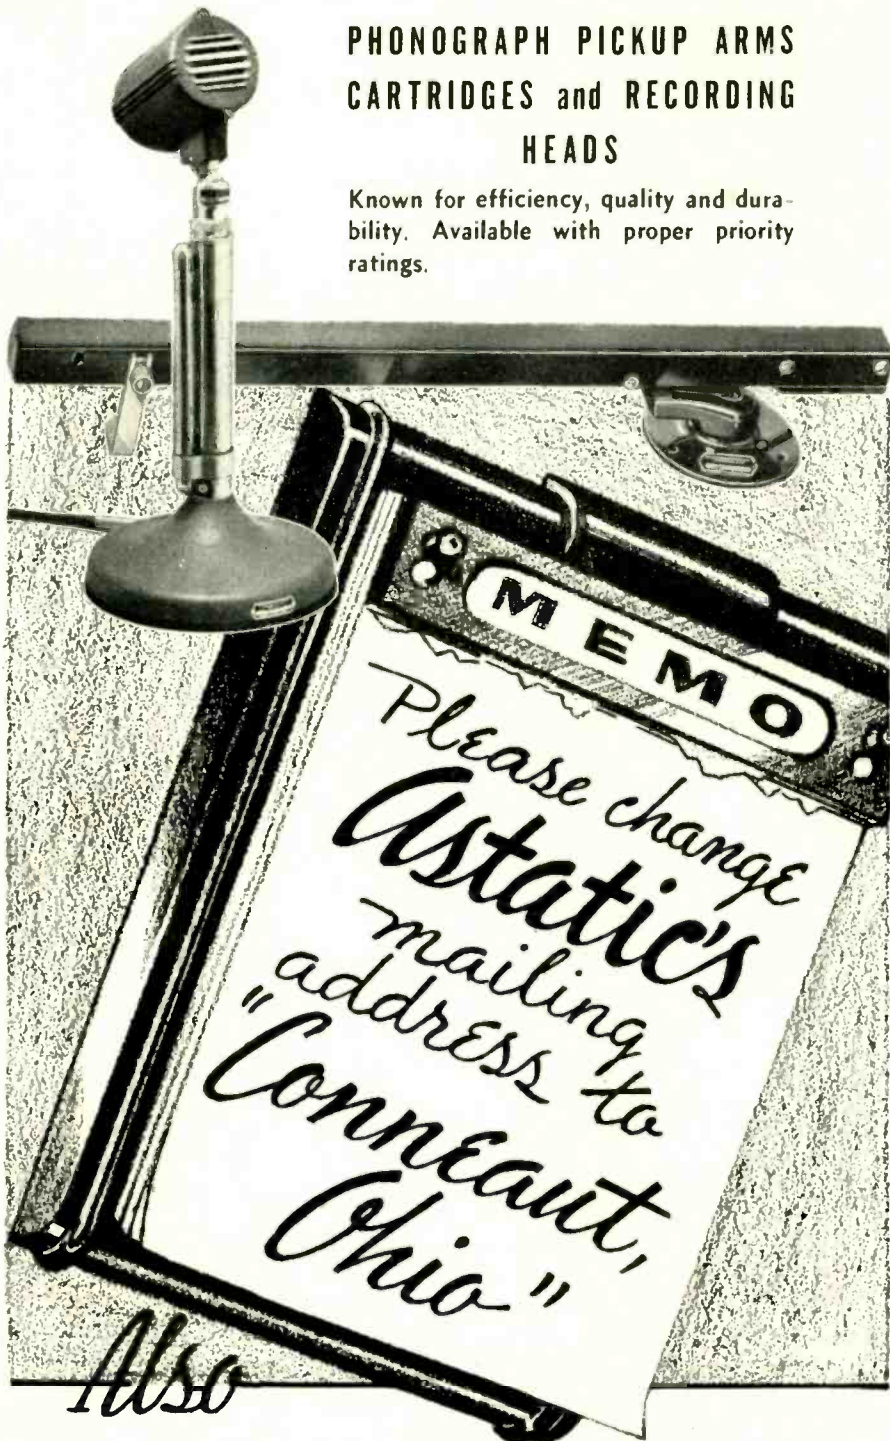 PHONOGRAPH PICKUP ARMS
CARTRIDGES and RECORDING
HEADS
Known for efficiency, quality and dura-
bility. Available with proper priority
ratings.
MEMO
Please change
Astatic's
mailing
address to
"Conneaut,
Ohio"
Also